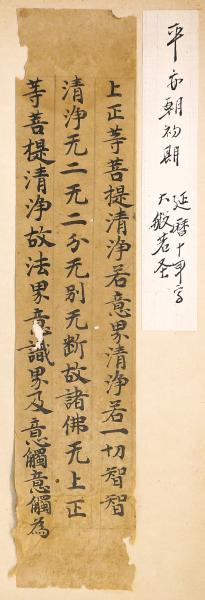 平安朝初期
延暦十年写
大般若経
上正等菩提清淨若意界清淨若一切智智
清淨无二无二分无別无断故諸佛无上正
等菩提清淨故法界意識界及意觸意觸為